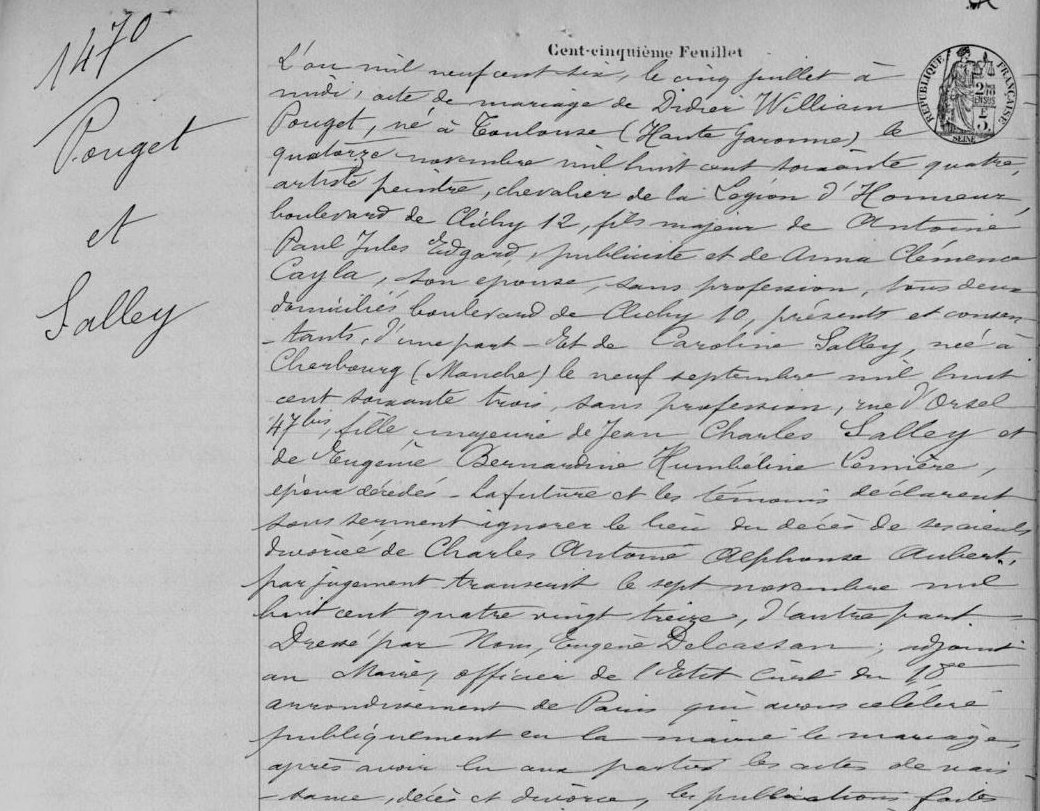 1470
Pouget
et
Salley
Cent-cinquième Feuillet
RÉPUBLIQUE FRANÇAISE
SEINE
L'an mil neuf cent six, le cinq juillet à
midi, acte de mariage de Didier William
Pouget, né à Toulouse (Haute Garonne) le
quatorze novembre mil huit cent soixante quatre,
artiste peintre, chevalier de la Légion d'Honneur,
boulevard de Clichy 12, fils majeur de Antoine
Paul Jules Edgard, publiciste et de Anna Clémence
Cayla, son épouse, sans profession, tous deux
domiciliés boulevard de Clichy 10, présents et consen
-tants, d'une part - Et de Caroline Salley, née à
Cherbourg (Manche) le neuf septembre mil huit
cent soixante trois, sans profession, rue d'Orsel
47 bis, fille majeure de Jean Charles Salley et
de Eugénie Bernardine Humbéline Lemière,
époux décédés - La future et les témoins déclarent
sous serment ignorer le lieu du décès de ses aïeuls
divorcée de Charles Antoine Alphonse Aubert,
par jugement transcrit le sept novembre mil
huit cent quatre vingt treize, d'autre part -
Dressé par Nous, Eugène Delcassan, adjoint
au Maire, officier de l'Etat Civil du 18me
arrondissement de Paris qui avons célébré
publiquement en la mairie le mariage,
après avoir lu aux parties les actes de nais
-sance, décès et divorce, les publications faites